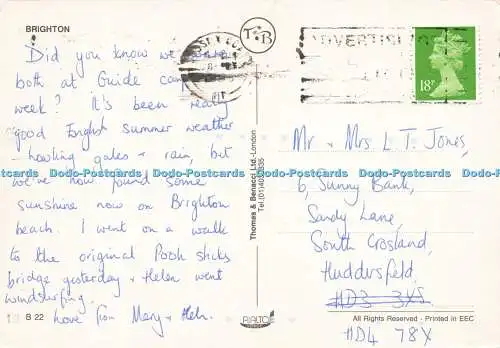 BRIGHTON
Did you know we were
both at Guide camp
week? It's been really
good English summer weather
- howling gales & rain, but
we've now found some
sunshine now on Brighton
beach. I went on a walk
to the original Pooh sticks
bridge yesterday & Helen went
windsurfing.
Love from Mary & Helen.
B 22
T B
ADVERTISING
18P
Thomas & Benacci Ltd.-London
Mr & Mrs L T Jones,
6, Sunny Bank,
Sandy Lane,
South Crosland,
Huddersfield.
HD3 3XS
HD4 78X
RIALTO
All Rights Reserved - Printed in EEC
Dodo-Postcards Dodo-Postcards Dodo-Postcards Dodo-Postcards